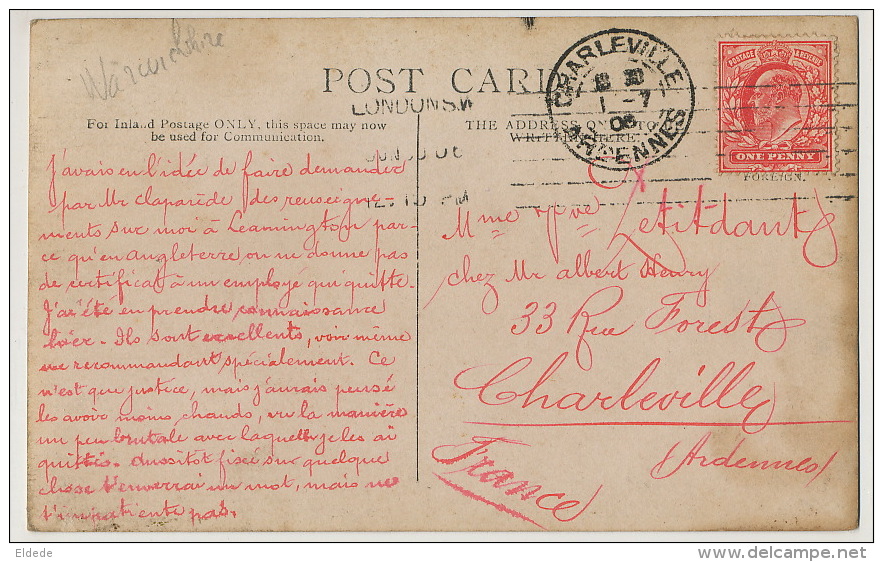 Warwickshire
POST CARD
LONDON S.W
For Inland Postage ONLY, this space may now
be used for Communication.
THE ADDRESS ONLY TO
WRITTEN HERE
JUN 30 06
12.15 PM
CHARLEVILLE
1 - 7
06
ARDENNES
POSTAGE & REVENUE
ONE PENNY
FOREIGN.
J'avais eu l'idée de faire demander
par Mr Claparède des renseigne-
ments sur moi à Leamington par-
ce qu'en angleterre on ne donne pas
de certificat à un employé qui quitte.
J'ai été en prendre connaissance
hier. Ils sont excellents, voir même
me recommandant spécialement. Ce
n'est que justice, mais j'aurais pensé
les avoir moins chauds, vu la manière
un peu brutale avec laquelle je les ai
quittés. Aussitôt fixé sur quelque
chose t'enverrai un mot, mais ne
t'impatiente pas.
Mme Vve Petitdant
chez Mr albert Henry
33 Rue Forest
Charleville
(Ardennes)
France
Eldede
delcampe.net